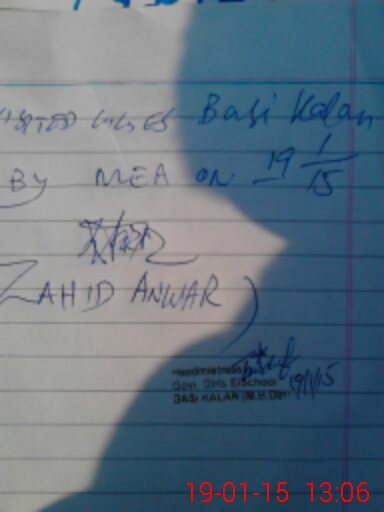 VISITED GGES Basi Kalan
BY MEA ON 19/1/15
ZAHID ANWAR)
Headmistress
Govt. Girls E/School
BASI KALAN (M.B.Din)
19/1/15
19-01-15 13:06